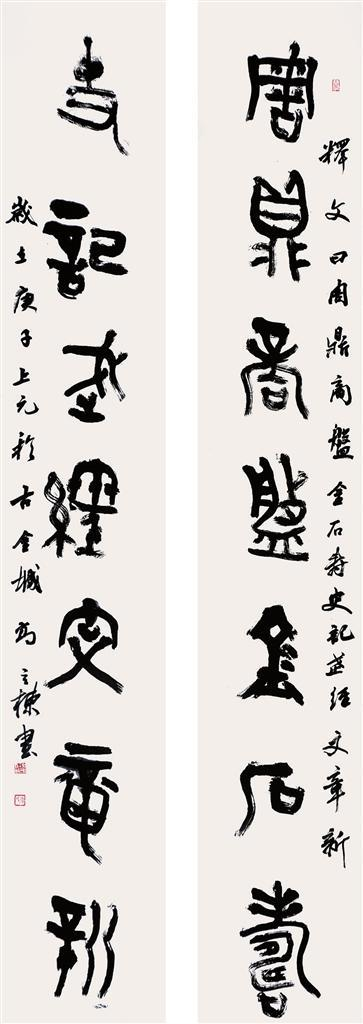 周鼎商盤金石壽
釋文曰周鼎商盤金石寿史記經文章新
史記經文章新
歲在庚子上元於古金城棟書